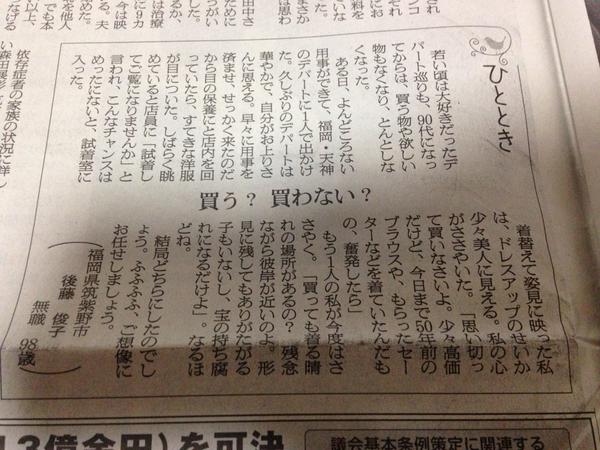 ひととき
若い頃は大好きだったデ
パート巡りも、90代になっ
てからは、買う物や欲しい
物もなくなり、とんとしな
くなった。
ある日、よんどころない
用事ができて、福岡・天神
のデパートに1人で出かけ
た。久しぶりのデパートは
華やかで、自分がお上りさ
んに思える。早々に用事を
済ませ、せっかく来たのだ
から目の保養にと店内を回
っていたら、すてきな洋服
が目についた。しばらく眺
めていると店員に「試着し
てご覧になりませんか」と
言われ、こんなチャンスは
めったにないと、試着室に
入った。
買う？ 買わない？
着替えて姿見に映った私
は、ドレスアップのせいか
少々美人に見える。私の心
がささやいた。「思い切っ
て買いなさいよ。少々高価
だけど、今日まで50年前の
ブラウスや、もらったセー
ターなどを着ていたんだも
の、奮発したら」
もう1人の私が今度はさ
さやく。「買っても着る晴
れの場所があるの？ 残念
ながら彼岸が近いのよ。形
見に残してもありがたがる
子もいないし、宝の持ち腐
れになるだけよ」。なるほ
どね。
結局どちらにしたのでし
ょう。ふふふふ、ご想像に
お任せしましょう。
福岡県筑紫野市
後藤 俊子
無職 98歳
依存症者の家族の状況に詳し
13億余円）を可決
議会基本条例策定に関連する